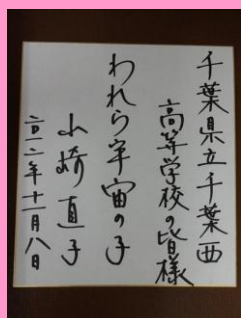 千葉県立千葉西
高等学校の皆様
われら宇宙の子
山崎直子
二〇一二年十一月八日